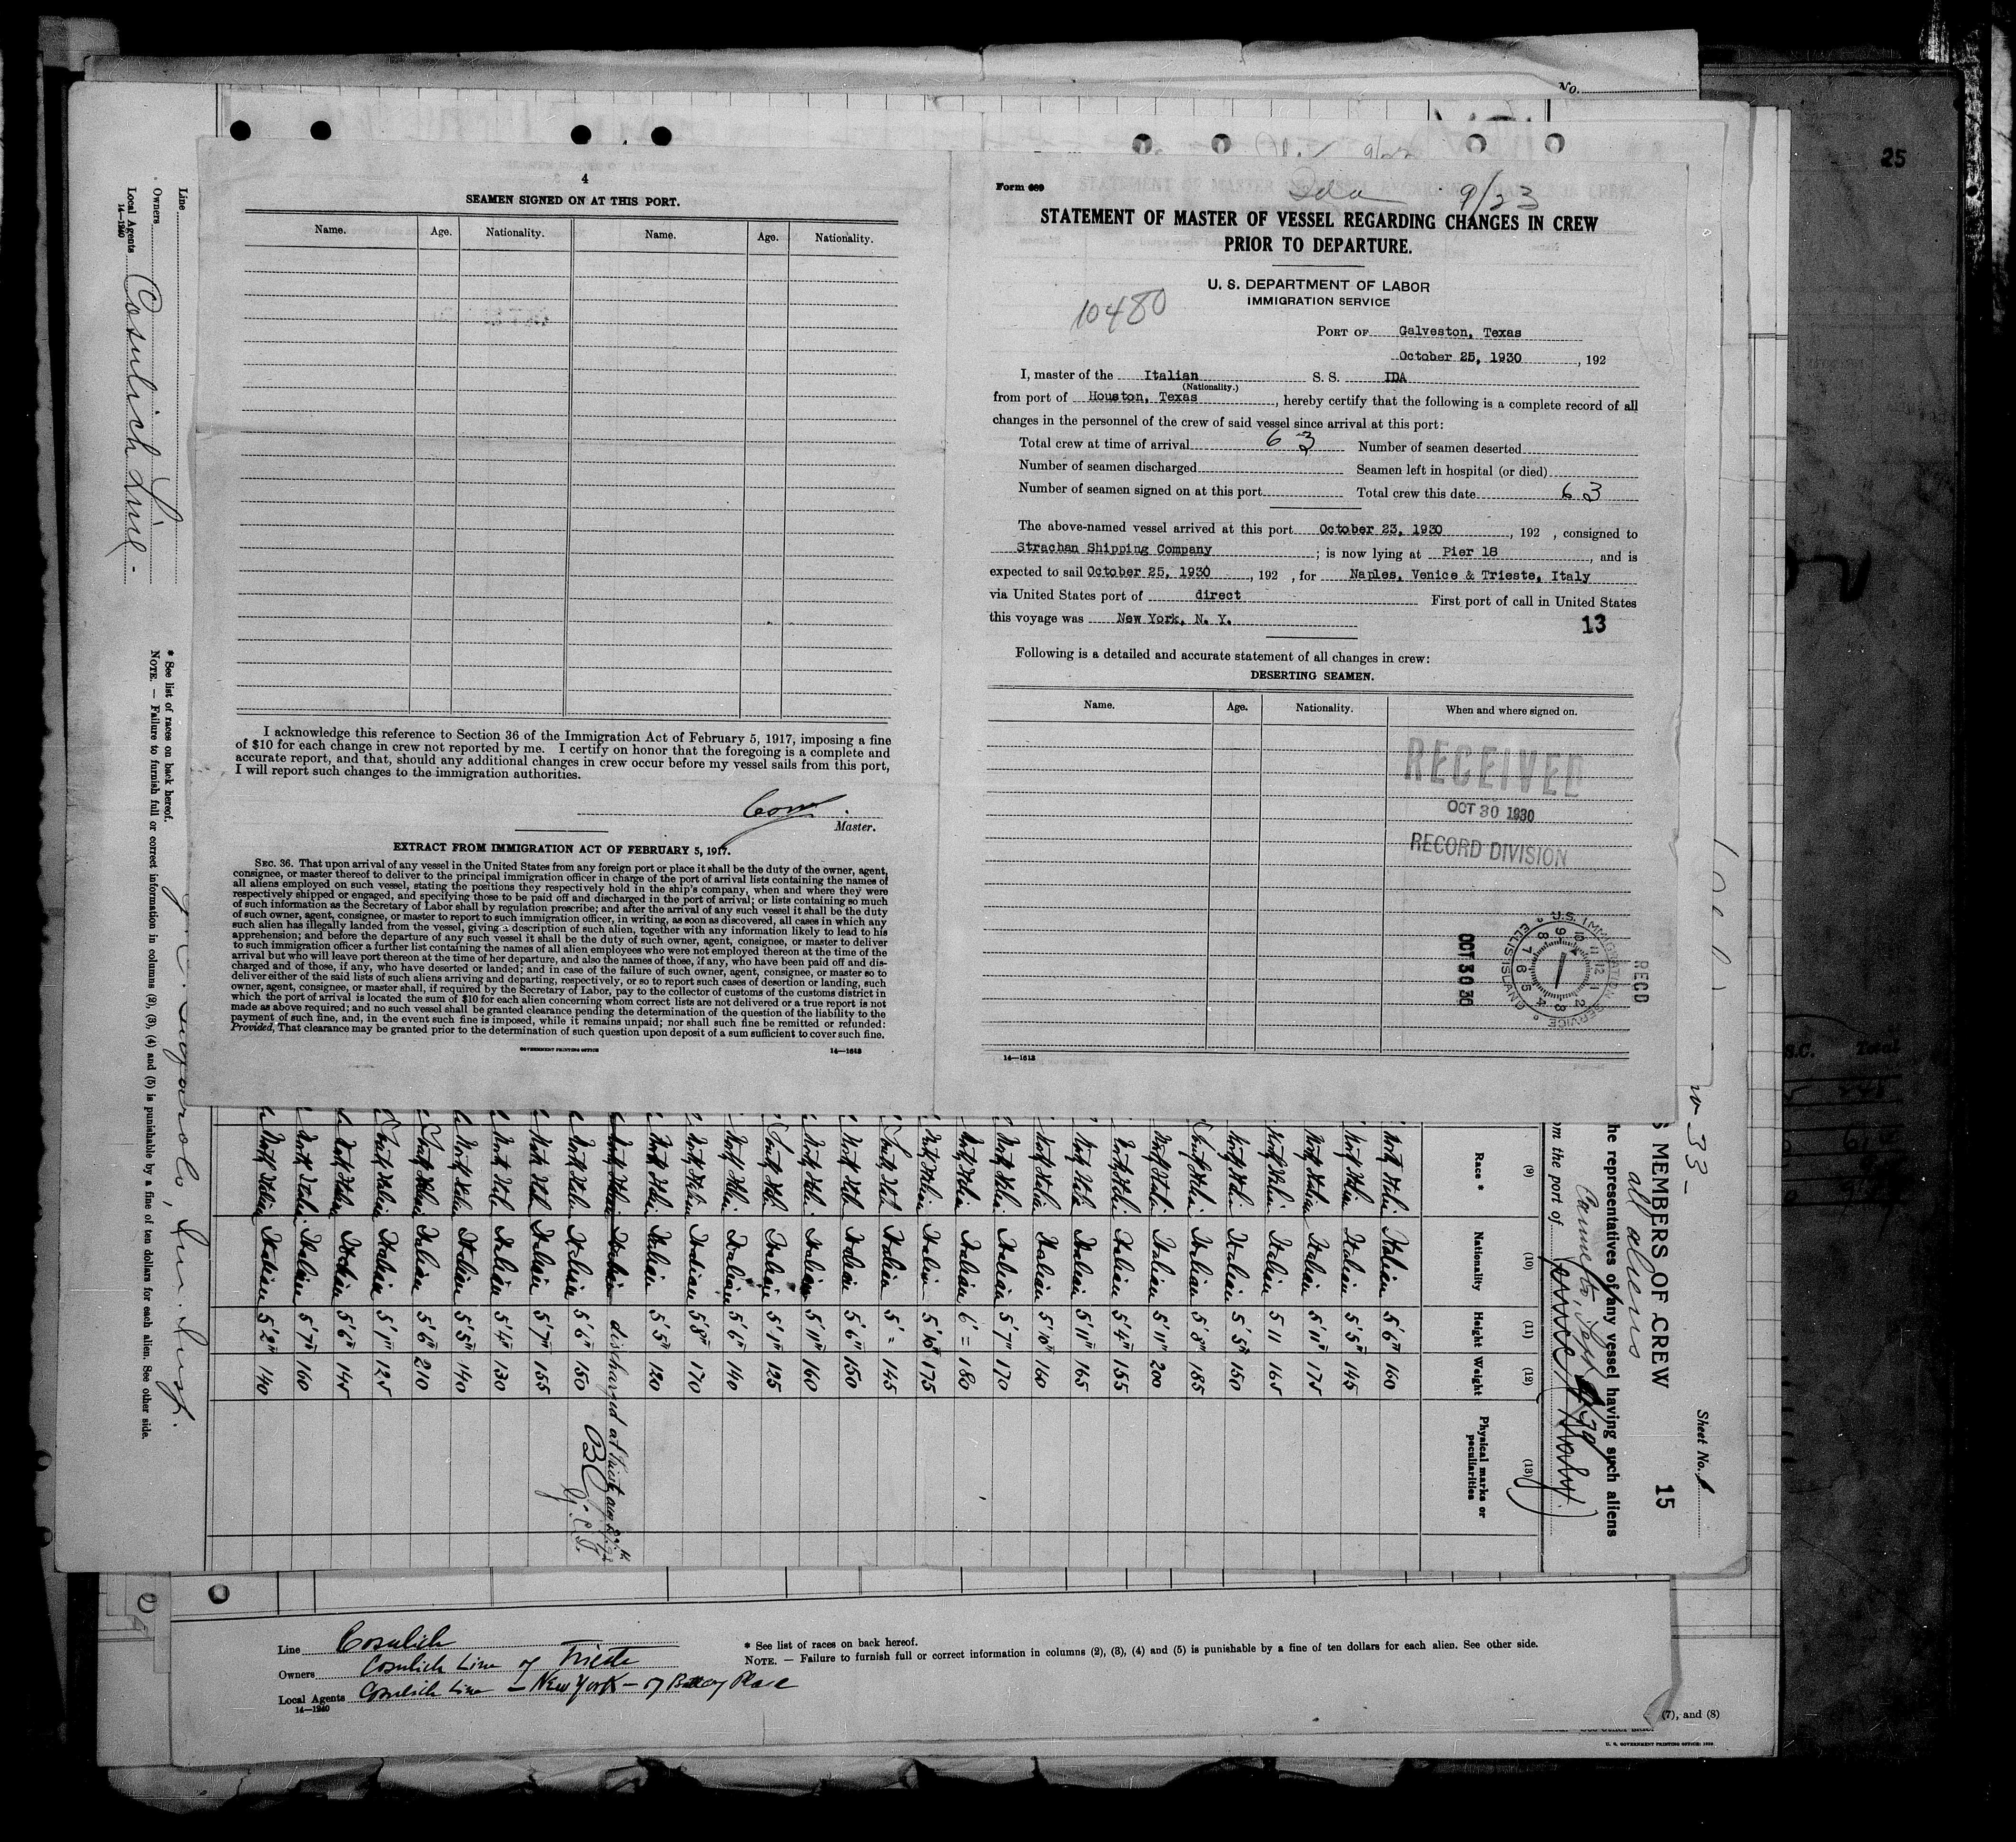 No.
25
4
SEAMEN SIGNED ON AT THIS PORT.
Name. Age. Nationality. Name. Age. Nationality.
I acknowledge this reference to Section 36 of the Immigration Act of February 5, 1917, imposing a fine
of $10 for each change in crew not reported by me. I certify on honor that the foregoing is a complete and
accurate report, and that, should any additional changes in crew occur before my vessel sails from this port,
I will report such changes to the immigration authorities.
Master.
EXTRACT FROM IMMIGRATION ACT OF FEBRUARY 5, 1917.
SEC. 36. That upon arrival of any vessel in the United States from any foreign port or place it shall be the duty of the owner, agent,
consignee, or master thereof to deliver to the principal immigration officer in charge of the port of arrival lists containing the names of
all aliens employed on such vessel, stating the positions they respectively hold in the ship's company, when and where they were
respectively shipped or engaged, and specifying those to be paid off and discharged in the port of arrival; or lists containing so much
of such information as the Secretary of Labor shall by regulation prescribe; and after the arrival of any such vessel it shall be the duty
of such owner, agent, consignee, or master to report to such immigration officer, in writing, as soon as discovered, all cases in which any
such alien has illegally landed from the vessel, giving a description of such alien, together with any information likely to lead to his
apprehension; and before the departure of any such vessel it shall be the duty of such owner, agent, consignee, or master to deliver
to such immigration officer a further list containing the names of all alien employees who were not employed thereon at the time of the
arrival but who will leave port thereon at the time of her departure, and also the names of those, if any, who have been paid off and dis-
charged and of those, if any, who have deserted or landed; and in case of the failure of such owner, agent, consignee, or master so to
deliver either of the said lists of such aliens arriving and departing, respectively, or so to report such cases of desertion or landing, such
owner, agent, consignee, or master shall, if required by the Secretary of Labor, pay to the collector of customs of the customs district in
which the port of arrival is located the sum of $10 for each alien concerning whom correct lists are not delivered or a true report is not
made as above required; and no such vessel shall be granted clearance pending the determination of the question of the liability to the
payment of such fine, and, in the event such fine is imposed, while it remains unpaid; nor shall such fine be remitted or refunded:
Provided, That clearance may be granted prior to the determination of such question upon deposit of a sum sufficient to cover such fine.
GOVERNMENT PRINTING OFFICE 14—1613
Form 689
Ida 9/23
STATEMENT OF MASTER OF VESSEL REGARDING CHANGES IN CREW
PRIOR TO DEPARTURE.
U. S. DEPARTMENT OF LABOR
IMMIGRATION SERVICE
10480
PORT OF Galveston, Texas
October 25, 1930, 192
I, master of the Italian S. S. IDA
(Nationality.)
from port of Houston, Texas, hereby certify that the following is a complete record of all
changes in the personnel of the crew of said vessel since arrival at this port:
Total crew at time of arrival 63 Number of seamen deserted
Number of seamen discharged Seamen left in hospital (or died)
Number of seamen signed on at this port Total crew this date 63
The above-named vessel arrived at this port October 23, 1930, 192 , consigned to
Strachan Shipping Company ; is now lying at Pier 18, and is
expected to sail October 25, 1930, 192 , for Naples, Venice & Trieste, Italy
via United States port of direct First port of call in United States
this voyage was New York, N. Y.
13
Following is a detailed and accurate statement of all changes in crew:
DESERTING SEAMEN.
Name. Age. Nationality. When and where signed on.
RECEIVED
OCT 30 1930
RECORD DIVISION
OCT 30 30
U.S. IMMIGRATION SERVICE ELLIS ISLAND
RECD
14—1613
Line
Owners Cosulich Line -
Local Agents
14—1240
* See list of races on back hereof.
NOTE. — Failure to furnish full or correct information in columns (2), (3), (4) and (5) is punishable by a fine of ten dollars for each alien. See other side.
Sheet No. 1
S MEMBERS OF CREW 15
all aliens
he representatives of any vessel having such aliens
om the port of
(9) (10) (11) (12) (13)
Race * Nationality Height Weight Physical marks or peculiarities
Italian 5'6" 160
Italian 5'5" 145
Italian 5'11" 175
Italian 5 11 165
Italian 5'5" 150
Italian 5'8" 185
Italian 5'11" 200
Italian 5'4" 155
Italian 5'11" 165
Italian 5'10" 160
Italian 5'7" 170
Italian 6' = 180
Italian 5'10" 175
Italian 5' = 145
Italian 5'6" 150
Italian 5'11" 160
Italian 5'1" 125
Italian 5'6" 140
Italian 5'8" 170
Italian 5'5" 120
Italian discharged at Trieste
Italian 5'6" 150
Italian 5'7" 155
Italian 5'4" 130
Italian 5'5" 140
Italian 5'6" 210
Italian 5'1" 125
Italian 5'6" 145
Italian 5'7" 160
Italian 5'2" 140
S.C. Total
Line Cosulich
Owners Cosulich Line of Trieste
Local Agents Cosulich Line – New York – 17 Battery Place
14—1240
* See list of races on back hereof.
NOTE. — Failure to furnish full or correct information in columns (2), (3), (4) and (5) is punishable by a fine of ten dollars for each alien. See other side.
(7), and (8)
U. S. GOVERNMENT PRINTING OFFICE: 1929